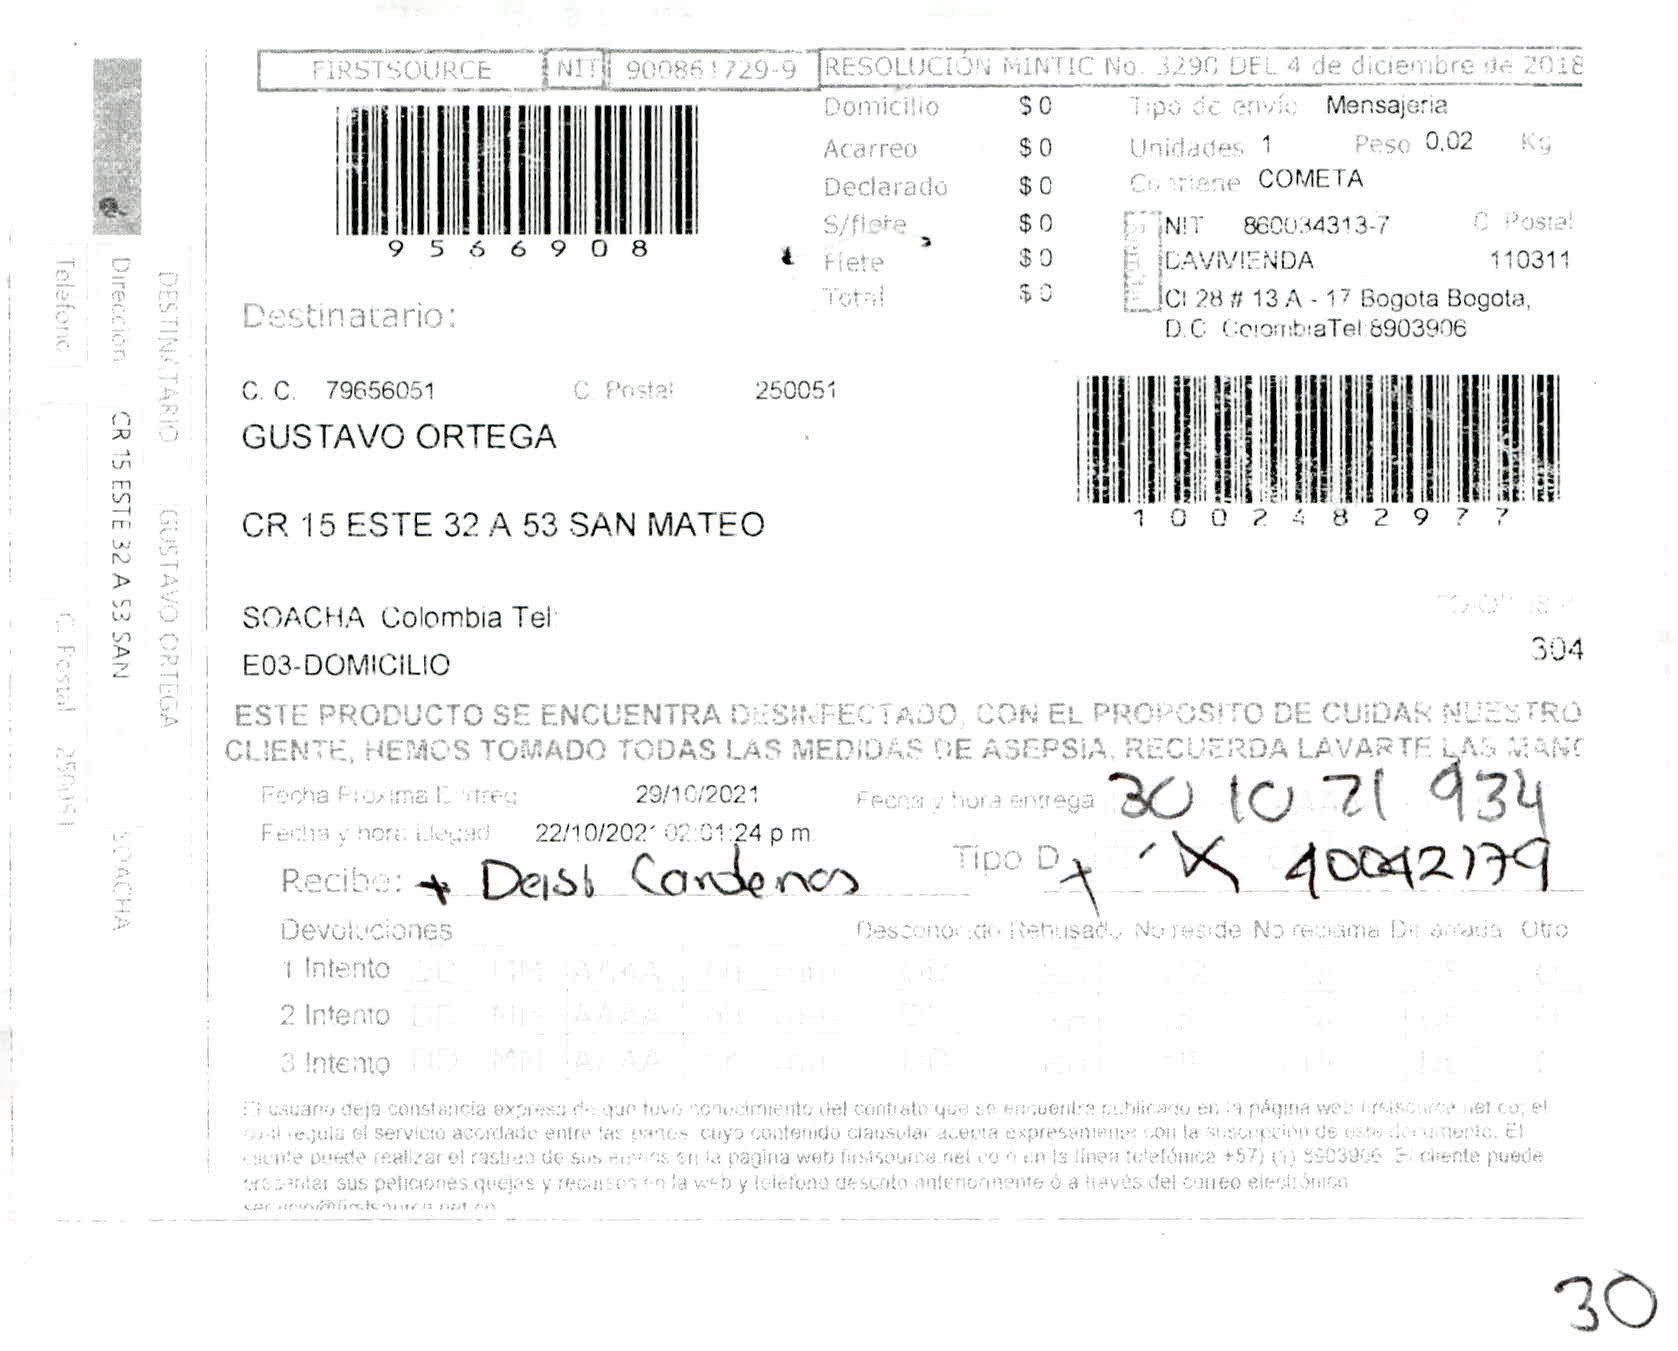 FIRSTSOURCE NIT 900861729-9 RESOLUCIÓN MINTIC No. 3290 DEL 4 de diciembre de 2018
9566908
Domicilio $ 0
Acarreo $ 0
Declarado $ 0
S/flete $ 0
Flete $ 0
Total $ 0
Tipo de envío Mensajeria
Unidades 1 Peso 0,02 Kg
Contiene COMETA
NIT 860034313-7 C. Postal
DAVIVIENDA 110311
Cl 28 # 13 A - 17 Bogota Bogota,
D.C. Colombia Tel 8903906
Destinatario:
C. C. 79656051 C. Postal 250051
GUSTAVO ORTEGA
1002482977
CR 15 ESTE 32 A 53 SAN MATEO
SOACHA Colombia Tel:
304
E03-DOMICILIO
ESTE PRODUCTO SE ENCUENTRA DESINFECTADO, CON EL PROPOSITO DE CUIDAR NUESTRO
CLIENTE, HEMOS TOMADO TODAS LAS MEDIDAS DE ASEPSIA. RECUERDA LAVARTE LAS
Fecha Proxima Entreg 29/10/2021 Fecha y hora entrega 30 10 21 934
Fecha y hora Llegad 22/10/2021 02:01:24 p m
Recibe: + Deisi Cardenas Tipo D X 40042179
Devoluciones Desconocido Rehusado No reside No reclama Dir errada Otro
1 Intento DD MM AAAA
2 Intento DD MM AAAA
3 Intento DD MM AAAA
El usuario deja constancia expresa de que tuvo conocimiento del contrato que se encuentra publicado en la página web firstsource.net.co, el
cual regula el servicio acordado entre las partes, cuyo contenido clausular acepta expresamente con la suscripción de este documento. El
cliente puede realizar el rastreo de sus envíos en la pagina web firstsource.net.co o en la línea telefónica +57) (1) 8903906. El cliente puede
presentar sus peticiones quejas y recursos en la web y teléfono descrito anteriormente ó a través del correo electrónico
servicio@firstsource.net.co
30
DESTINATARIO GUSTAVO ORTEGA
Dirección CR 15 ESTE 32 A 53 SAN SOACHA
Telefono C. Postal 250051